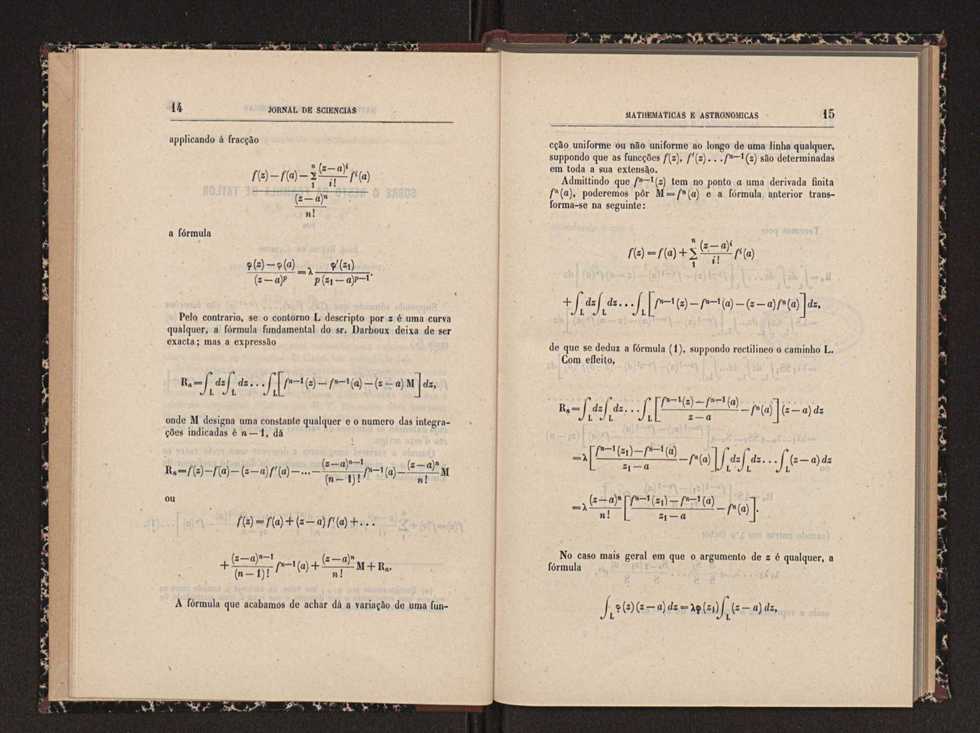 14 JORNAL DE SCIENCIAS
applicando á fracção
f(z) − f(a) − Σ₁ⁿ (z−a)ⁱ/i! fⁱ(a)
(z−a)ⁿ/n!
a fórmula
φ(z)−φ(a)/(z−a)ᵖ = λ φ'(z₁)/p(z₁−a)ᵖ⁻¹.
Pelo contrario, se o contorno L descripto por z é uma curva
qualquer, a fórmula fundamental do sr. Darboux deixa de ser
exacta; mas a expressão
Rₙ=∫_L dz∫_L dz...∫_L[fⁿ⁻¹(z)−fⁿ⁻¹(a)−(z−a)M]dz,
onde M designa uma constante qualquer e o numero das integra-
ções indicadas é n−1, dá
Rₙ=f(z)−f(a)−(z−a)f'(a)−...−(z−a)ⁿ⁻¹/(n−1)! fⁿ⁻¹(a)−(z−a)ⁿ/n! M
ou
f(z)=f(a)+(z−a)f'(a)+...
+(z−a)ⁿ⁻¹/(n−1)! fⁿ⁻¹(a)+(z−a)ⁿ/n! M+Rₙ.
A fórmula que acabamos de achar dá a variação de uma fun-
MATHEMATICAS E ASTRONOMICAS 15
cção uniforme ou não uniforme ao longo de uma linha qualquer,
suppondo que as funcções f(z), f'(z)...fⁿ⁻¹(z) são determinadas
em toda a sua extensão.
Admittindo que fⁿ⁻¹(z) tem no ponto a uma derivada finita
fⁿ(a), poderemos pôr M=fⁿ(a) e a fórmula anterior trans-
forma-se na seguinte:
f(z)=f(a)+Σ₁ⁿ (z−a)ⁱ/i! fⁱ(a)
+∫_L dz∫_L dz...∫_L[fⁿ⁻¹(z)−fⁿ⁻¹(a)−(z−a)fⁿ(a)]dz,
de que se deduz a fórmula (1), suppondo rectilineo o caminho L.
Com effeito,
Rₙ=∫_L dz∫_L dz...∫_L[fⁿ⁻¹(z)−fⁿ⁻¹(a)/z−a −fⁿ(a)](z−a)dz
=λ[fⁿ⁻¹(z₁)−fⁿ⁻¹(a)/z₁−a −fⁿ(a)]∫_L dz∫_L dz...∫_L(z−a)dz
=λ (z−a)ⁿ/n! [fⁿ⁻¹(z₁)−fⁿ⁻¹(a)/z₁−a −fⁿ(a)].
No caso mais geral em que o argumento de z é qualquer, a
fórmula
∫_L φ(z)(z−a)dz=λφ(z₁)∫_L(z−a)dz,